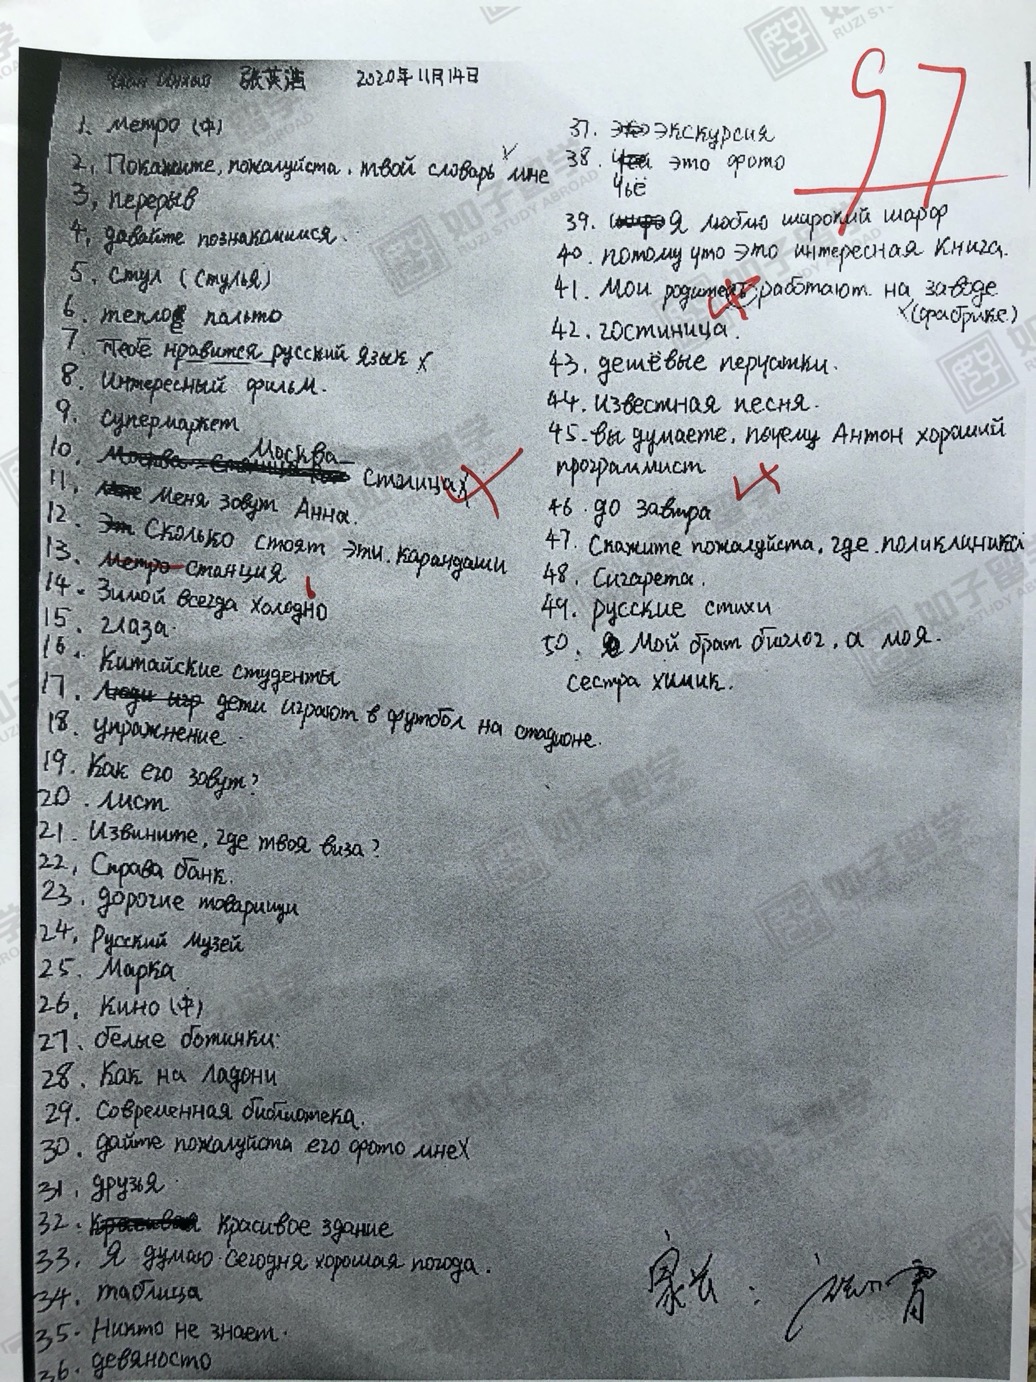 张英浩 2020年11月14日
97
1. метро (中)
2. Покажите, пожалуйста. твой словарь мне
3, перерыв
4, давайте познакомимся.
5. стул (стулья)
6. тёплое пальто
7. Тебе нравится русский язык x
8. Интересный фильм.
9. супермаркет
Москва
10. Столица x
11. Меня зовут Анна.
12. Сколько стоят эти. карандаши
13. Метро станция
14. Зимой всегда холодно
15. глаза.
16. Китайские студенты
17. дети играют в футбол на стадионе.
18. упражнение.
19. Как его зовут?
20. лист
21. Извините, где твоя виза?
22, Справа банк.
23. дорогие товарищи
24, Русский музей
25. Марка
26, кино (中)
27. белые ботинки:
28. Как на ладони
29. Современная библиотека.
30. дайте пожалуйста его фото мне x
31, друзья.
32. красивое здание
33. Я думаю. сегодня хорошая погода.
34. таблица
35. Никто не знает.
36. девяносто
37. экскурсия
38. это фото
Чьё
39. Я люблю широкий шарф
40. потому что это интересная книга.
41. Мои работают. на заводе
x (фабрике)
42. гостиница.
43. дешёвые перчатки.
44. известная песня.
45. вы думаете, почему Антон хороший
программист
46. до завтра
47. Скажите пожалуйста, где. поликлиника
48. Сигарета.
49. русские стихи
50. Мой брат биолог, а моя.
сестра химик.
家长:
如子留学
RUZI STUDY ABROAD